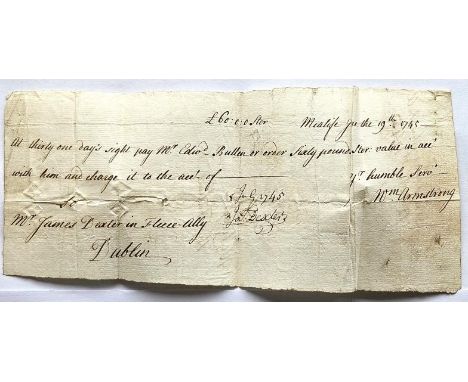 £60:0:0 Ster Mealiffe Jue the 19th 1745
At thirty one day's sight pay Mr Edwd Bullen or order Sixty pound Ster value in acct
with him and charge it to the acct of Yr humble Servt
To Wm Armstrong
1745
Mr James Dexter in Fleece-Ally Jas Dexter
Dublin